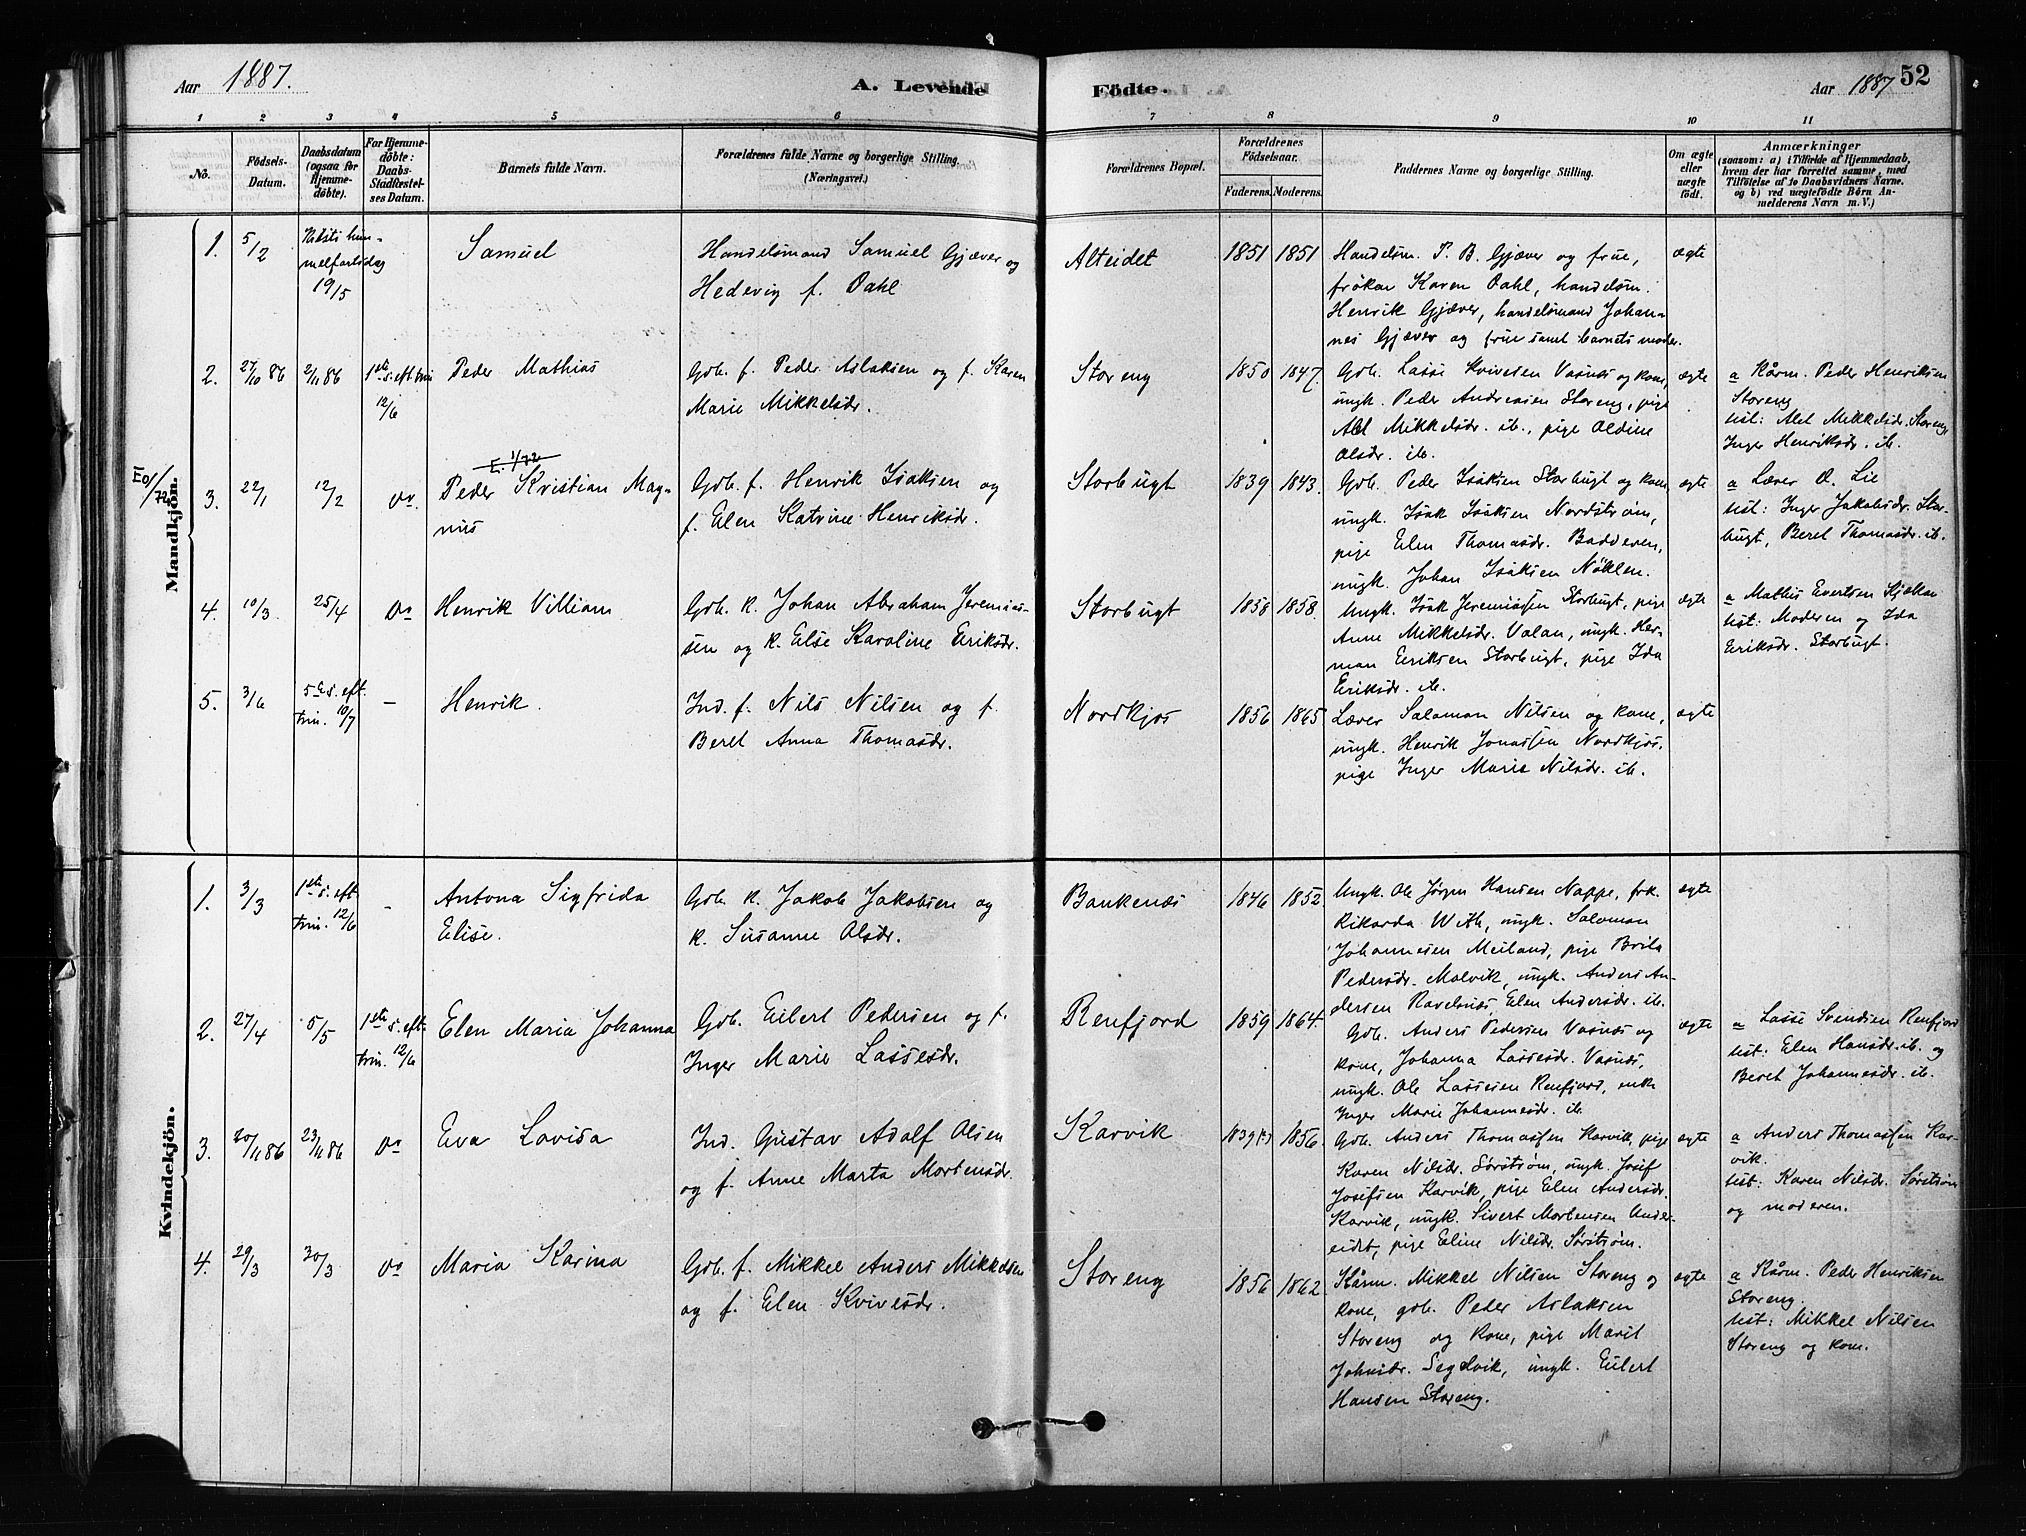 Aar 1887.
A. Levende
Födte.
Aar 1887
52
1
2
3
4
5
6
7
8
9
10
11
No.
Födsels-
Datum.
Daabsdatum
(ogsaa for
Hjemme-
döbte).
For Hjemme-
döbte:
Daabs-
Stadfæstel-
ses Datum.
Barnets fulde Navn.
Forældrenes fulde Navne og borgerlige Stilling.
(Næringsvei.)
Forældrenes Bopæl.
Forældrenes
Födselsaar.
Faderens.
Moderens.
Faddernes Navne og borgerlige Stilling.
Om ægte
eller
uægte
født.
Anmærkninger
(saasom: a) i Tilfælde af Hjemmedaab,
hvem der har forrettet samme, med
Tilføielse af to Daabsvidners Navne.
og b) ved uægtefödte Börn An-
melderens Navn m. V.)
Mandkjön.
1.
5/2
Kristi him-
melfartsdag
19/5
Samuel
Handelsmand Samuel Gjæver og
Hedevig f. Dahl
Alteidet
1851
1851
Handelsm. P. B. Gjæver og frue,
frøken Karen Dahl, handelsm.
Henrik Gjæver, handelsmand Johan-
nes Gjæver og frue samt barnets moder.
ægte
2.
27/10 86
2/11 86
1ste s. eft. trin
12/6
Peder Mathias
Gdb. f. Peder Aslaksen og f. Karen
Marie Mikkelsdr.
Storeng
1850
1847.
Gdb. Lasse Kvivesen Vasnæs og kone,
ungk. Peder Andreasen Storeng, pige
Alet Mikkelsdr. ib., pige Oldine
Olsdr. ib.
ægte
a Kårm. Peder Henriksen
Storeng
test: Alet Mikkelsdr. Storeng
Inger Henriksdr. ib.
E. 1/72
E01/72
3.
22/1
12/2
Do.
Peder Kristian Mag-
nus
Gdb. f. Henrik Isaksen og
f. Elen Katrine Henriksdr.
Storbugt
1839
1843.
Gdb. Peder Isaksen Storbugt og kone,
ungk. Isak Isaksen Nordstrøm,
pige Elen Thomasdr. Badderen,
ungk. Johan Isaksen Nöklen.
ægte
a Lærer O. Lie
test: Inger Jakobsdr. Stor-
bugt, Beret Thomasdr. ib.
4.
10/3
25/4
Do
Henrik Villiam
Gdb. k. Johan Abraham Jeremias-
sen og k. Else Karoline Eriksdr.
Storbugt
1858
1858.
Ungk. Isak Jeremiassen Storbugt, pige
Anne Mikkelsdr. Valan, ungk. Her-
man Eriksen Storbugt, pige Ida
Eriksdr. ib.
ægte
a Mathis Evertsen Kjækan
test: Moderen og Ida
Eriksdr. Storbugt.
5.
3/6
5te s. eft.
trin. 10/7
–
Henrik.
Ind. f. Nils Nilsen og f.
Beret Anna Thomasdr.
Nordkjos
1856
1865
Lærer Salamon Nilsen og kone,
ungk. Henrik Jonassen Nordkjos.
pige Inger Marie Nilsdr. ib.
ægte
Kvindekjön.
1.
3/3
1ste s. eft
trin. 12/6
-
Antona Sigfrida
Elise.
Gdb. k. Jakob Jakobsen og
k. Susanne Olsdr.
Bankenæs
1846
1852.
Ungk. Ole Jørgen Hansen Nappe, frk.
Rikarda With, ungk. Salamon
Johannesen Meiland, pige Brita
Pedersdr. Malvik, ungk. Anders An-
dersen Ravelsnæs, Elen Andersdr. ib.
ægte
2.
27/4
5/5
1ste s. eft.
trin. 12/6
Elen Maria Johanna
Gdb. Eilert Pedersen og f.
Inger Marie Lassesdr.
Renfjord
1859
1864.
Gdb. Anders Pedersen Vasnæs og
kone, Johanna Lassesdr. Vasnæs,
ungk. Ole Lassesen Renfjord, enke
Inger Marie Johannesdr. ib.
ægte
a Lasse Svendsen Renfjord
test: Elen Hansdr. ib. og
Beret Johannesdr. ib.
3.
20/11 86
23/11 86
Do
Eva Lovisa
Ind. Gustav Adolf Olsen
og f. Anne Marta Mortensdr.
Karvik
1839
1856.
Gdb. Anders Thomassen Karvik, pige
Karen Nilsdr. Sørstrøm, ungk. Josef
Josefsen Karvik, pige Elen Andersdr.
Karvik, ungk. Sivert Mortensen Ander-
eidet, pige Eline Nilsdr. Sørstrøm.
ægte
a Anders Thomassen Kar-
vik.
test: Karen Nilsdr. Sørstrøm
og moderen.
4.
29/3
30/3
Do
Maria Karina
Gdb. f. Mikkel Anders Mikkelsen
og f. Elen Kvivesdr.
Storeng
1856
1862.
Kårm. Mikkel Nilsen Storeng og
kone, gdb. Peder Aslaksen
Storeng og kone, pige Marit
Johnsdr. Segelvik, ungk. Eilert
Hansen Storeng.
ægte
a Kårm. Peder Henriksen
Storeng.
test: Mikkel Nilsen
Storeng og kone.